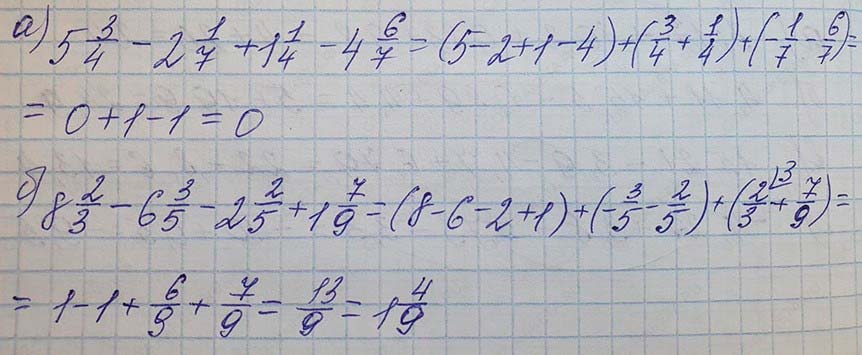 а) 5 3/4 − 2 1/7 + 1 1/4 − 4 6/7 = (5−2+1−4)+(3/4 + 1/4)+(−1/7 − 6/7)=
= 0+1−1 = 0
б) 8 2/3 − 6 3/5 − 2 2/5 + 1 7/9 = (8−6−2+1)+(−3/5 − 2/5)+(2/3 ⌊3 + 7/9)=
= 1−1+ 6/9 + 7/9 = 13/9 = 1 4/9